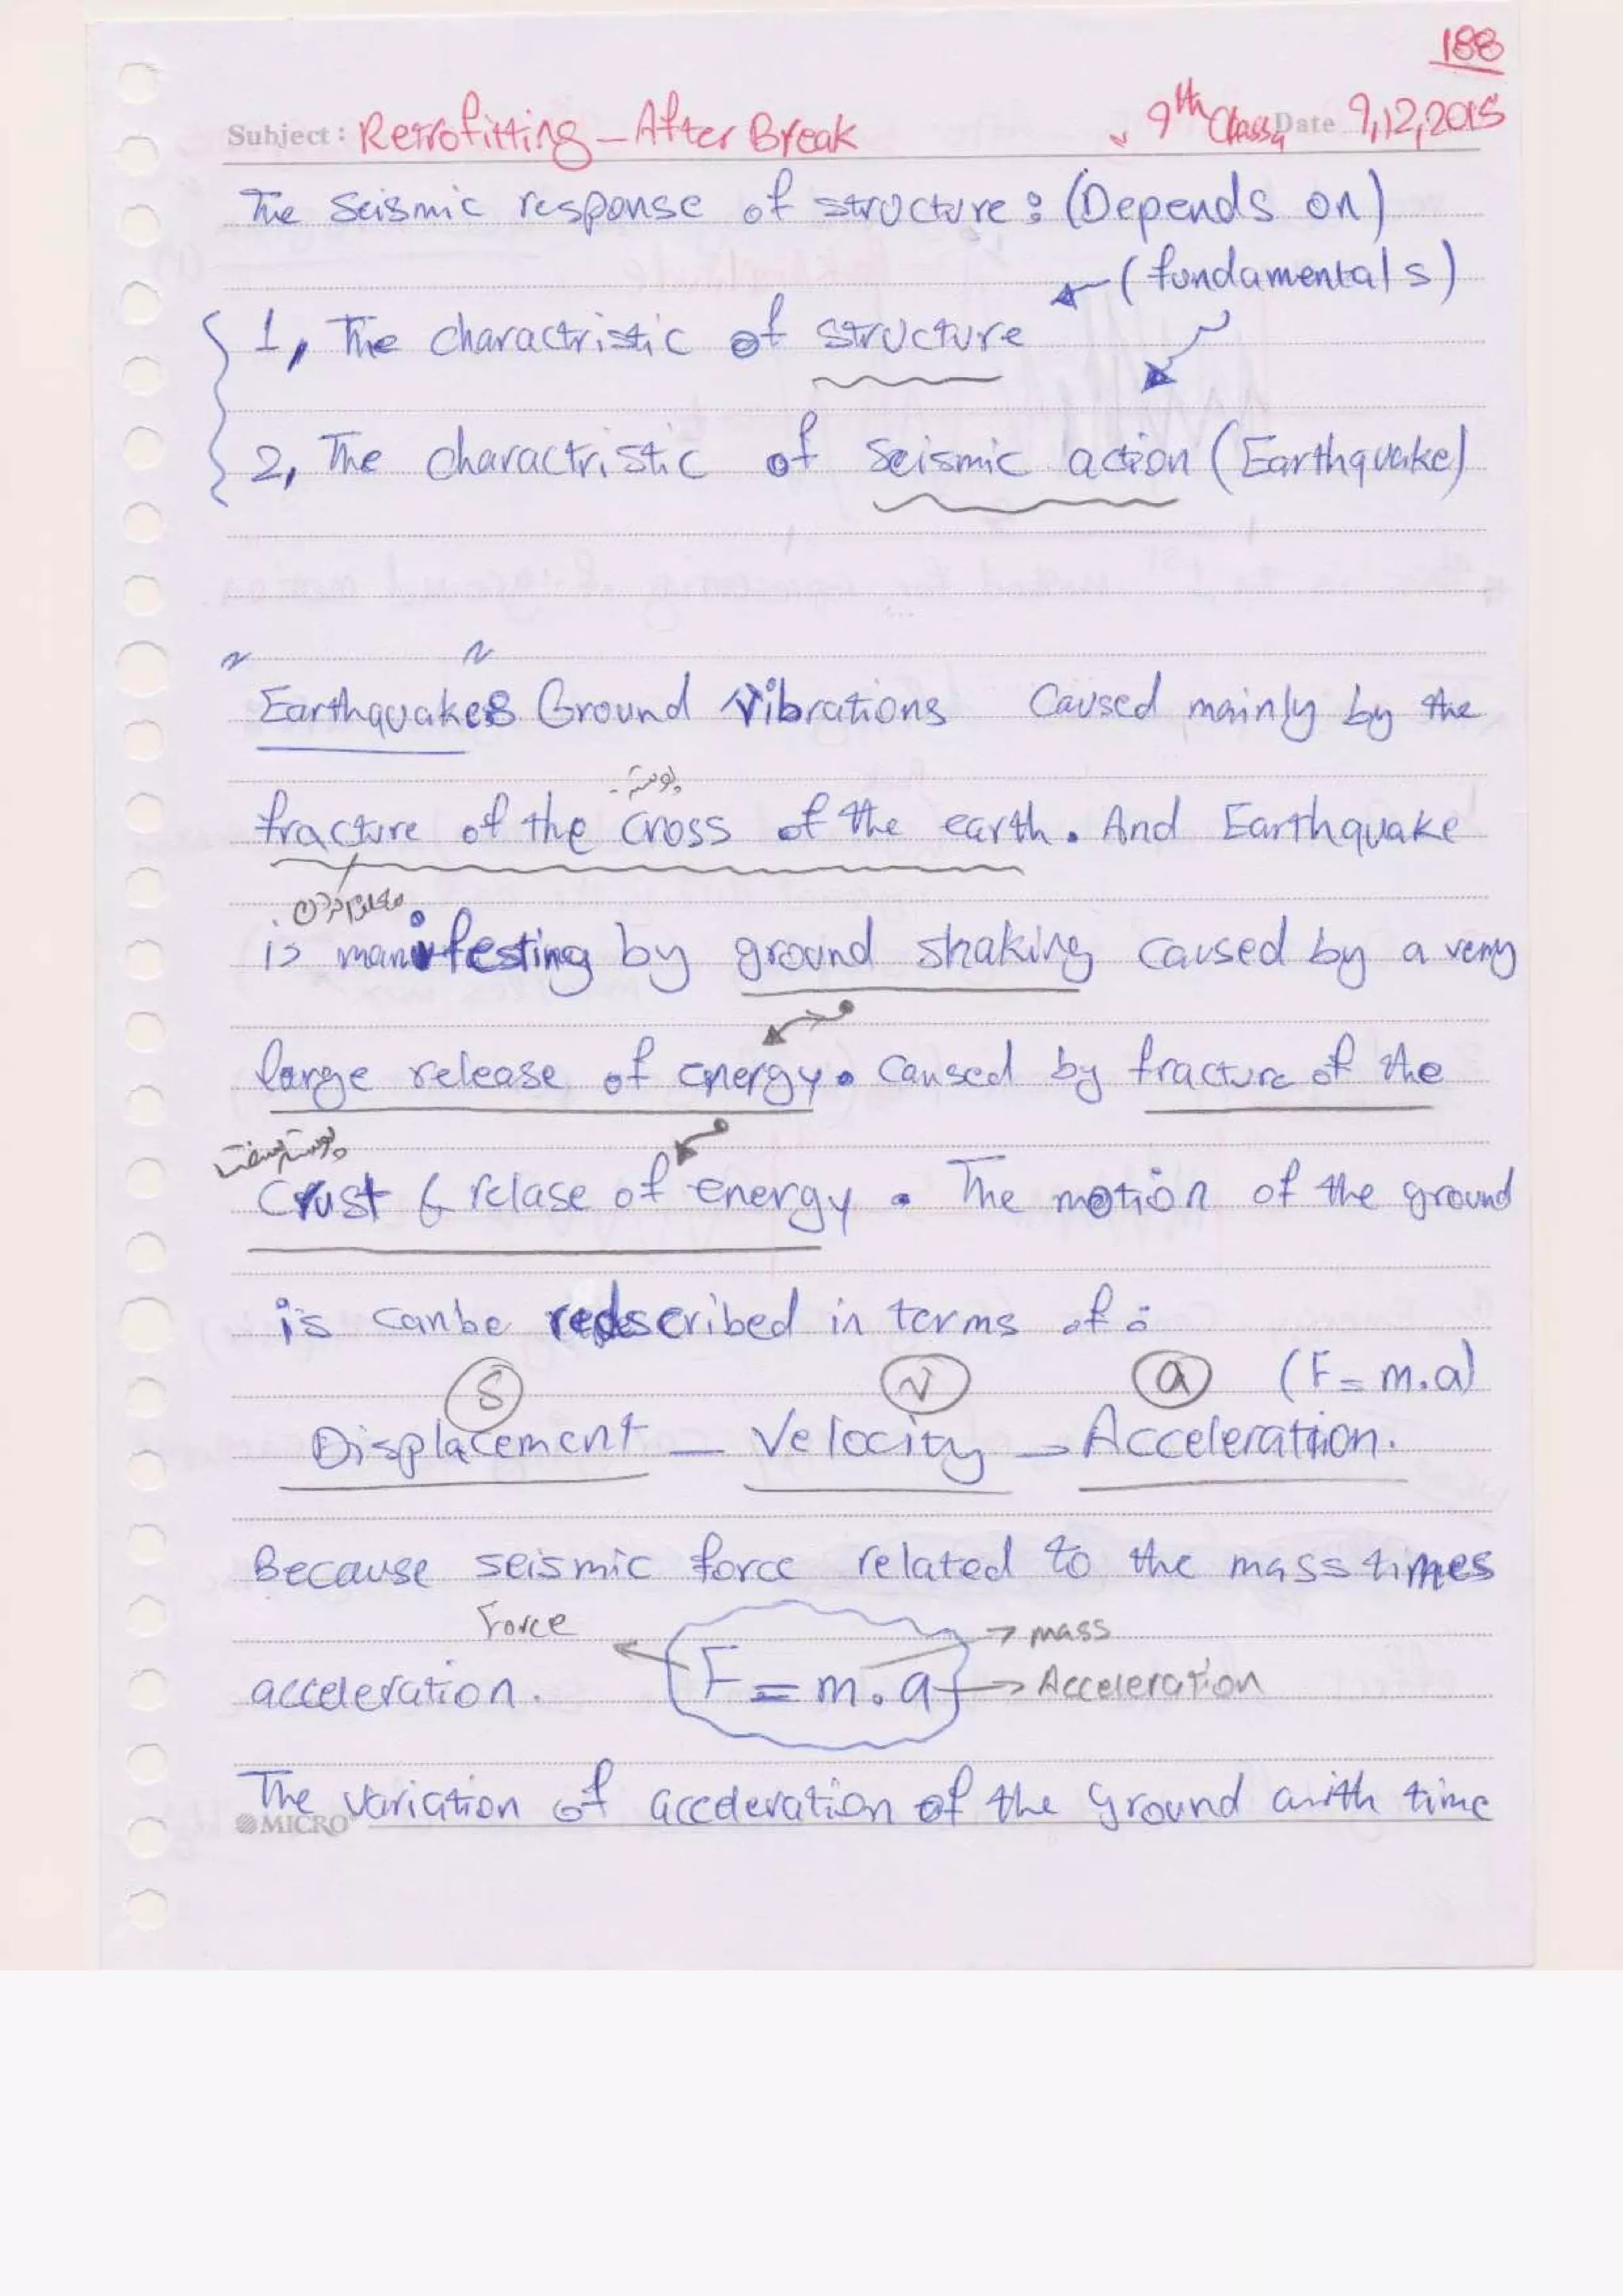 188
Subject: Retrofitting - After Break 9th Class, Date 9,12,2015
The seismic response of structure: (Depends on)
(fundamentals)
1, The charactristic of structure
2, The charactristic of seismic action (Earthquake)
Earthquakes Ground Vibrations Caused mainly by the
پوسته
fracture of the cross of the earth. And Earthquake
is manifesting by ground shaking caused by a very
large release of energy. Caused by fracture of the
پوسته سخت
Crust & relase of energy. The motion of the ground
is can be redescribed in terms of:
S V a (F = m.a)
Displacement - Velocity - Acceleration.
Because seismic force related to the mass times
Force mass
acceleration. F = m.a Acceleration
The variation of acceleration of the Ground with time
MICRO